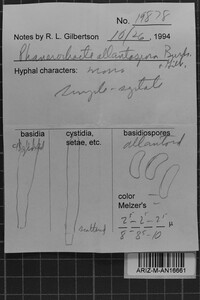 No. 19878
Notes by R. L. Gilbertson 10/26, 1994
Phanerochaete allantospora Burds. & Gilb.
Hyphal characters: mono
simple-septate
basidia
cystidia, setae, etc.
basidiospores
allantoid
color –
Melzer's –
ARIZ-M-AN16661